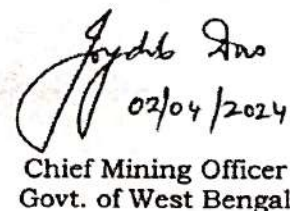 Joydeb Das
02/04/2024
Chief Mining Officer
Govt. of West Bengal